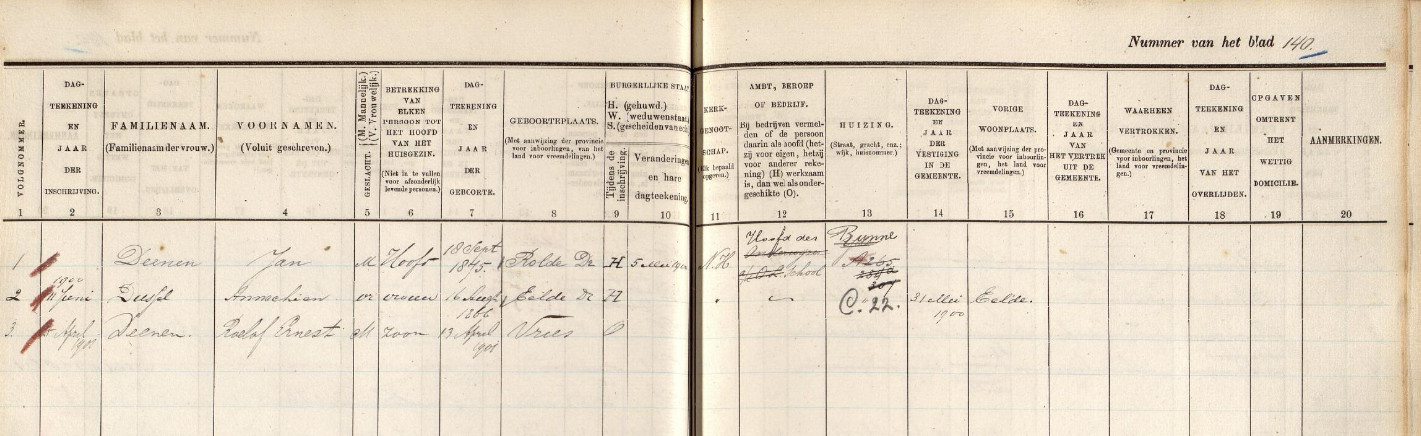 Nummer van het blad 140.
VOLGNOMMER.
DAG-
TEEKENING
EN
JAAR
DER
INSCHRIJVING.
FAMILIENAAM.
(Familienaam der vrouw.)
VOORNAMEN.
(Voluit geschreven.)
GESLACHT. (M. Mannelijk.)
(V. Vrouwelijk.)
BETREKKING
VAN
ELKEN
PERSOON TOT
HET HOOFD
VAN HET
HUISGEZIN.
(Niet in te vullen
voor afzonderlijk
levende personen.)
DAG-
TEEKENING
EN
JAAR
DER
GEBOORTE.
GEBOORTEPLAATS.
(Met aanwijzing der provincie
voor inboorlingen, van het
land voor vreemdelingen.)
BURGERLIJKE STAAT
H. (gehuwd.)
W. (weduwenstaat.)
S. (gescheiden van echt
Tijdens de
inschrijving.
Veranderingen
en hare
dagteekening.
KERK-
GENOOT-
SCHAP.
AMBT, BEROEP
OF BEDRIJF.
Bij bedrijven vermel-
den of de persoon
daarin als hoofd (het-
zij voor eigen, hetzij
voor anderer reke-
ning) (H) werkzaam
is, dan wel als onder-
geschikte (O).
HUIZING.
(Straat, gracht, enz.;
wijk, huisnummer.)
DAG-
TEEKENING
EN
JAAR
DER
VESTIGING
IN DE
GEMEENTE.
VORIGE
WOONPLAATS.
(Met aanwijzing der pro-
vincie voor inboorlin-
gen, het land voor
vreemdelingen.)
DAG-
TEEKENING
EN
JAAR
VAN
HET VERTREK
UIT DE
GEMEENTE.
WAARHEEN
VERTROKKEN.
(Gemeente en provincie
voor inboorlingen, het
land voor vreemdelin-
gen.)
DAG-
TEEKENING
EN
JAAR
VAN HET
OVERLIJDEN.
OPGAVEN
OMTRENT
HET
WETTIG
DOMICILIE.
AANMERKINGEN.
1 2 3 4 5 6 7 8 9 10 11 12 13 14 15 16 17 18 19 20
1 Deenen Jan M Hoofd 18 Sept 1845. Rolde Dr H N.H Hoofd der School Bunne
2 1900 11 Juni Annechien vr vrouw Eelde Dr H C. 22. 31 Mei 1900 Eelde.
3 April 1901 Deenen. Roelof Ernest M zoon 13 April 1901 Vries O